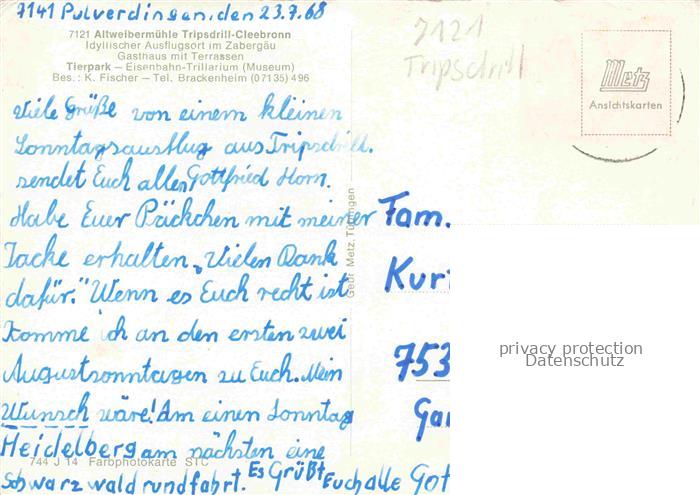 7141 Pulverdingen, den 23.7.68
7121 Altweibermühle Tripsdrill-Cleebronn
Idyllischer Ausflugsort im Zabergäu
Gasthaus mit Terrassen
Tierpark — Eisenbahn-Trillarium (Museum)
Bes.: K. Fischer — Tel. Brackenheim (07135) 496
7121
Tripsdrill
Metz
Ansichtskarten
Viele Grüße von einem kleinen
Sonntagsausflug aus Tripsdrill.
sendet Euch allen Gottfried Horn.
Habe Euer Päckchen mit meiner
Jacke erhalten „Vielen Dank
dafür." Wenn es Euch recht ist
Komme ich an den ersten zwei
Augustsonntagen zu Euch. Mein
Wunsch wäre! Am einen Sonntag
Heidelberg am nächsten eine
Schwarzwaldrundfahrt. Es Grüßt Euch alle Got
744 J 14 Farbphotokarte STC
Gebr. Metz, Tübingen
Fam.
Kur
753
privacy protection
Datenschutz